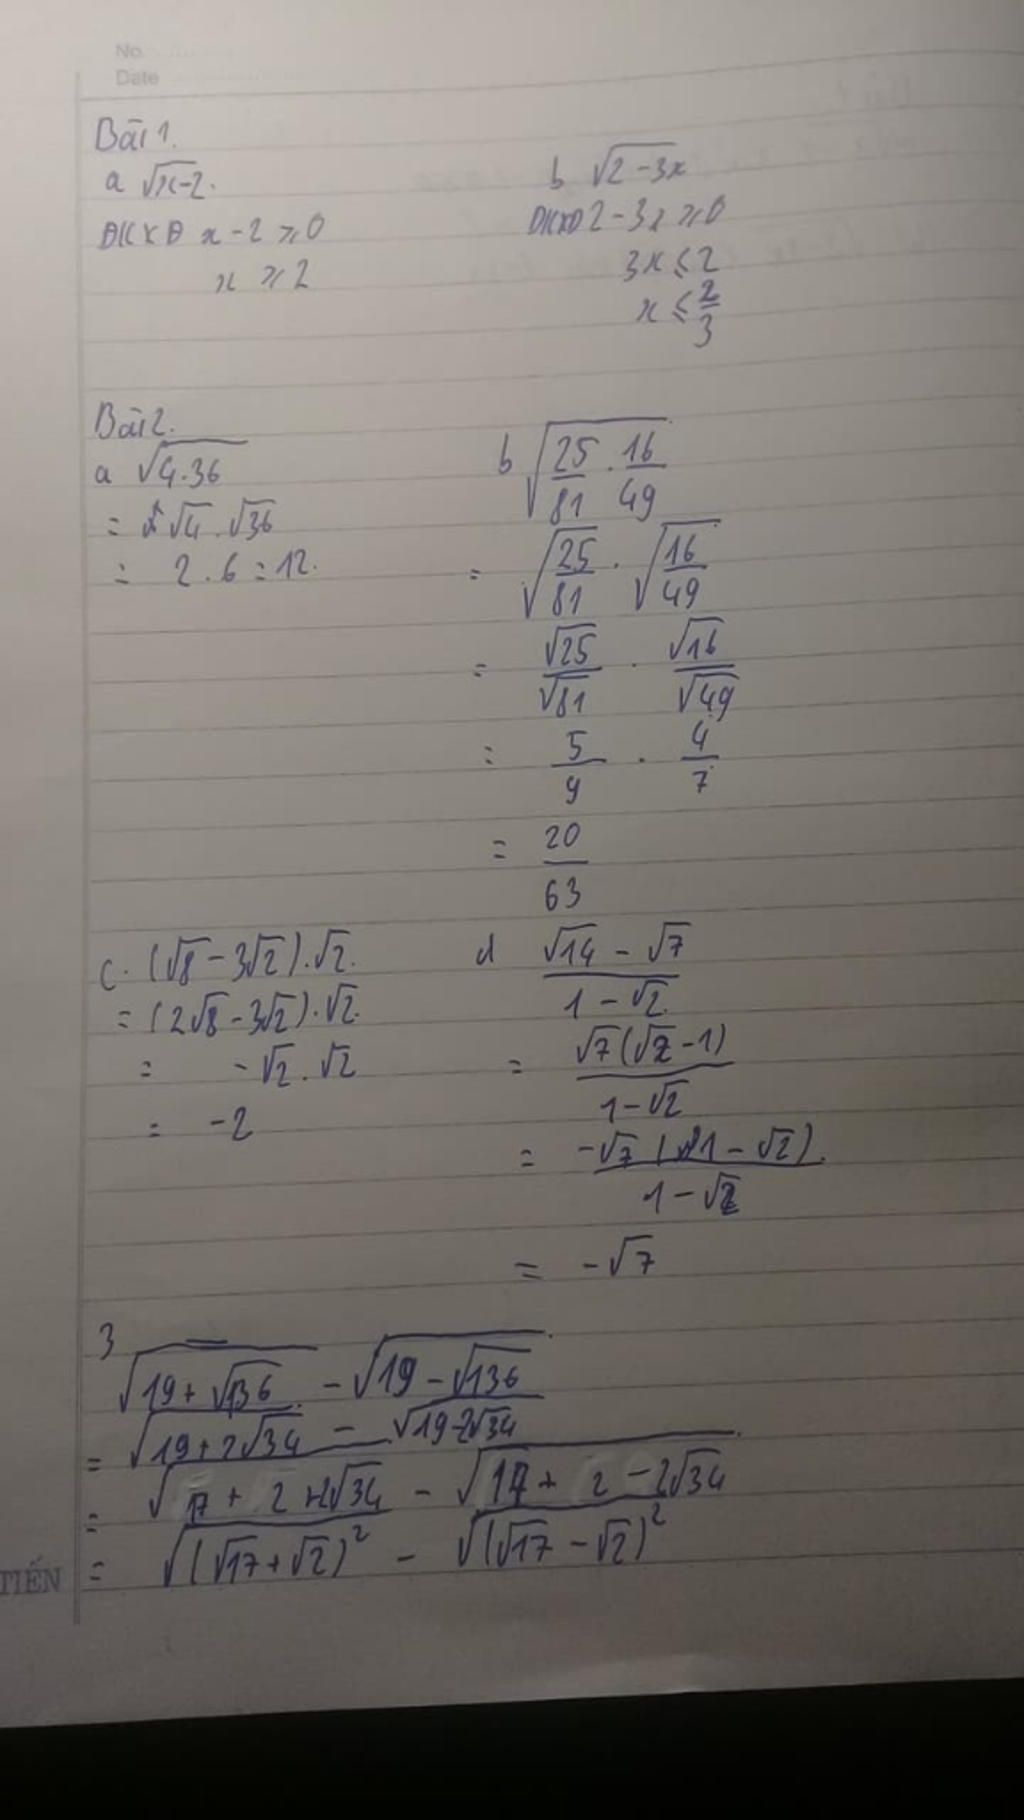 No.
Date
Bài 1.
a √(x-2).
ĐKXĐ x - 2 ≥ 0
x ≥ 2
b √(2-3x)
ĐKXĐ 2 - 3x ≥ 0
3x ≤ 2
x ≤ 2/3
Bài 2.
a √(4.36)
= √4 . √36
= 2 . 6 = 12.
b √(25/81 . 16/49)
= √(25/81) . √(16/49)
= √25/√81 . √16/√49
= 5/9 . 4/7
= 20/63
c. (√8 - 3√2).√2.
= (2√8 - 3√2).√2.
= -√2 . √2
= -2
d (√14 - √7)/(1 - √2)
= √7(√2 - 1)/(1 - √2)
= -√7(1 - √2)/(1 - √2).
= -√7
3
√(19 + √136) - √(19 - √136)
= √(19 + 2√34) - √(19 - 2√34)
= √(17 + 2 + 2√34) - √(17 + 2 - 2√34)
= √((√17 + √2)²) - √((√17 - √2)²)
TIẾN